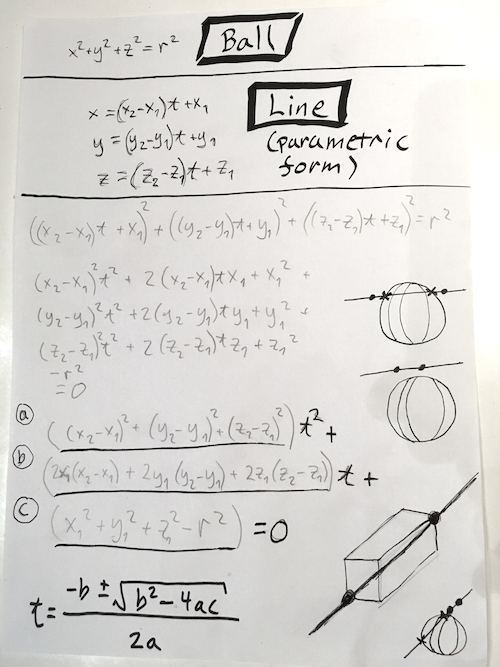 x² + y² + z² = r² Ball
x = (x₂-x₁)t + x₁
y = (y₂-y₁)t + y₁
z = (z₂-z₁)t + z₁
Line
(parametric
form)
((x₂-x₁)t + x₁)² + ((y₂-y₁)t + y₁)² + ((z₂-z₁)t + z₁)² = r²
(x₂-x₁)²t² + 2(x₂-x₁)tx₁ + x₁² +
(y₂-y₁)²t² + 2(y₂-y₁)ty₁ + y₁² +
(z₂-z₁)²t² + 2(z₂-z₁)tz₁ + z₁²
-r²
=0
a ((x₂-x₁)² + (y₂-y₁)² + (z₂-z₁)²) t² +
b (2x₁(x₂-x₁) + 2y₁(y₂-y₁) + 2z₁(z₂-z₁)) t +
c (x₁² + y₁² + z₁² - r²) = 0
t = (-b ± √(b² - 4ac)) / 2a